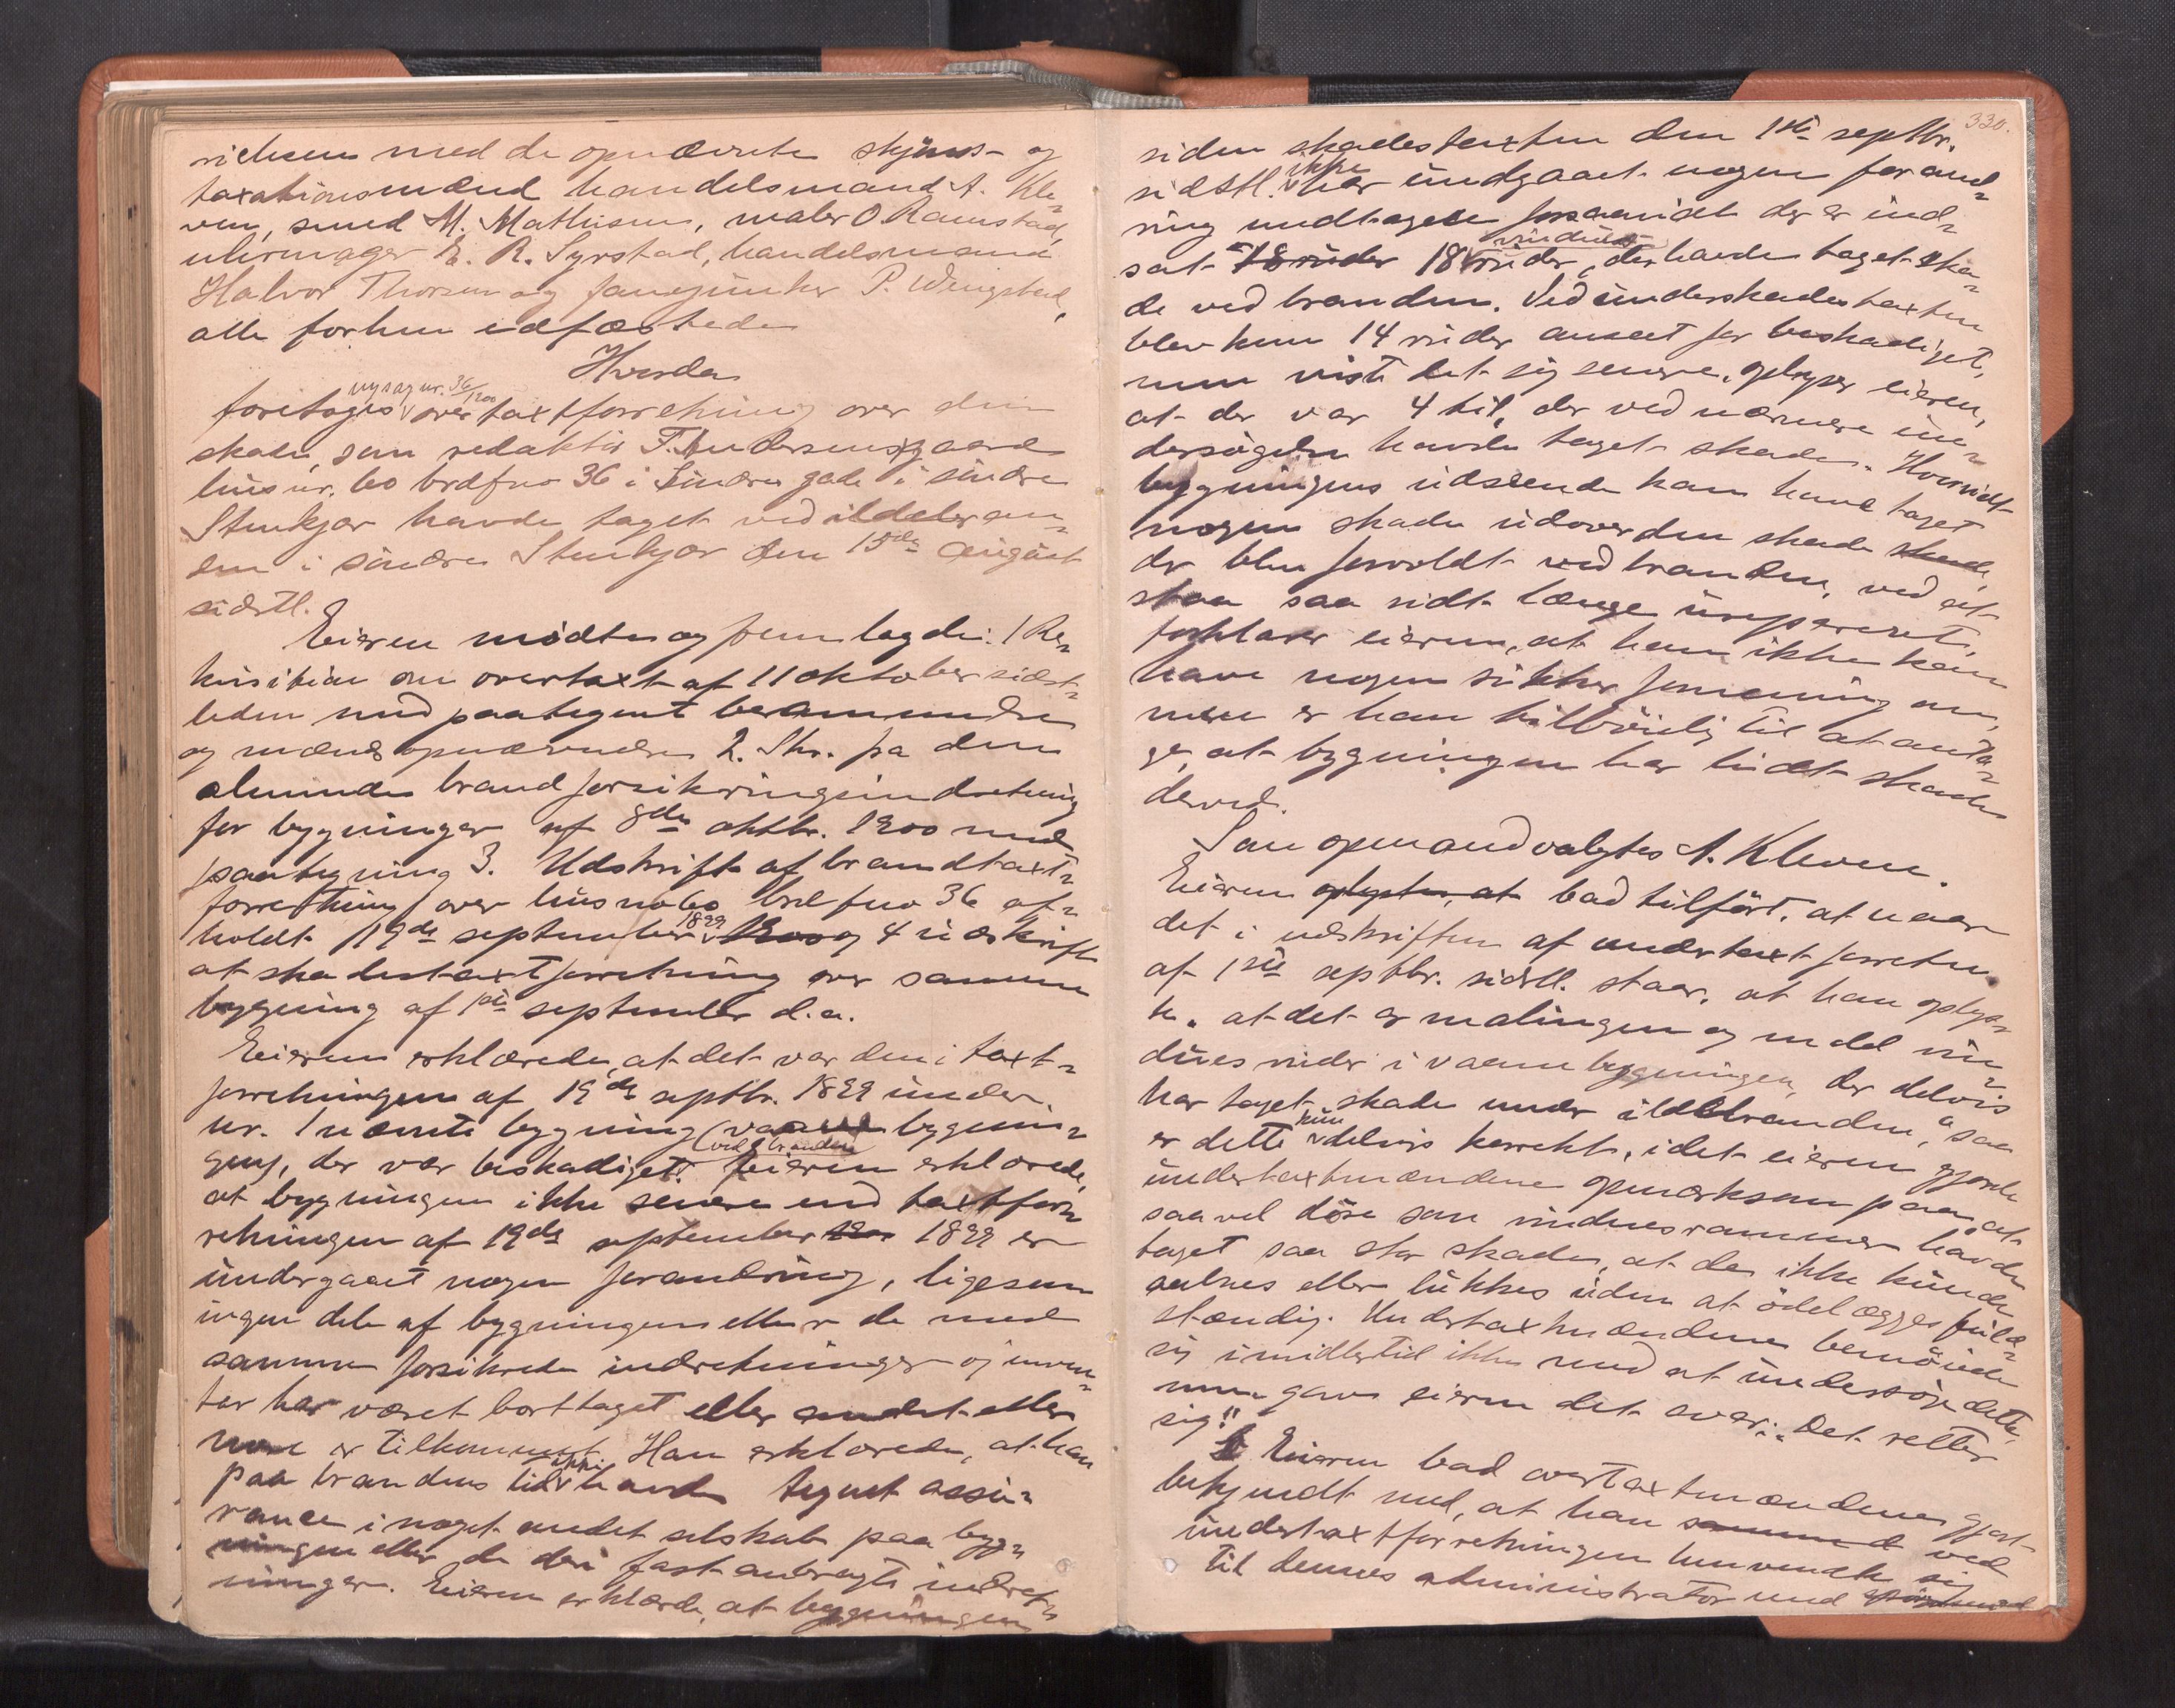 richsen med de opnævnte skjøns- og
taxationsmænd handelsmand A. Kle-
ven, smed M. Mathisen, maler O Ramstad,
uhrmager E. R. Syrstad, handelsmand
Halvor Thorsen og fanejunker P. Wengstad,
alle forhen edfæstede
Hvorda
nysag nr. 36/1900
foretoges overtaxtforretning over den
skade, som redaktør F. Andersens gaard
hus nr. 60 brdfno 36 i Søndre gade i søndre
Stenkjær havde taget ved ildebran-
den i søndre Stenkjær den 15de august
sidstl.
Eieren mødte og fremlagde: 1 Re-
kvisition om overtaxt af 11 oktober sidst-
leden med paategnet berammelse
og mændsopnævnelse 2. Skr. fra den
almindel brandforsikringsindretning
for bygninger af 8de oktbr. 1900 med
paategning 3. Udskrift af brandtaxt-
forretning over hus no 60 brd fno 36 af-
holdt 19de september 1899 1900 og 4 udskrift
at skadestaxtforretning over samme
bygning af 1ste september d.a.
Eieren erklærede, at det var den i taxt-
forretningen af 19de septbr. 1899 under
nr. 1 nævnte bygning (vaane bygnin-
gen), der var beskadiget ved branden. Eieren erklærede,
at bygningen ikke senere end taxtfor-
retningen af 19de september 1900 1899 er
undergaaet nogen forandring, ligesom
ingen dele af bygningen eller de med
samme forsikrede indretninger og inven-
tar har været borttaget eller andet eller
mere er tilkommet. Han erklærede, at han
paa brandens tid ikke havde tegnet assu-
rance i noget andet selskab paa byg-
ningen eller de deri fast anbragte indret-
ninger. Eieren erklærede, at bygningen
330.
siden skadestaxten den 1ste septbr.
sidstl. ikke har undgaaet nogen forand-
ring undtagen forsaavidt der er ind-
sat 18 ruder 18 vinduesruder, der havde taget ska-
de ved branden. Ved underskadestaxten
blev kun 14 ruder anseet for beskadiget,
men viste det sig senere, oplyser eieren,
at der var 4 til, der ved nærmere un-
dersøgelse havde taget skade. Hvorvidt
bygningens udseende kan have taget
nogen skade udover den skade skade,
der blev forvoldt ved branden, ved at
staa saa vidt længe ureparerет,
forklarer eieren, at han ikke kan
have nogen sikker formening om,
men er han tilbøielig til at anta-
ge, at bygningen har lidt skade
derved.
Som opmand valgtes A. Kleven.
Eieren oplyste, at bad tilført, at naar
det i udskriften af undertaxtforretn.
af 1ste septbr. sidstl. staar, at han oplys-
te, at det er malingen og endel vin-
duesruder i vaanebygningen, der delvis
har taget skade under ildebranden, saa
er dette kun delvis korrekt, idet eieren gjorde
undertaxtmændene opmærksom paa, at
saavel døre som vinduesrammer havde
taget saa stor skade, at de ikke kunde
aabnes eller lukkes uden at ødelægges fuld-
stændig. Undertaxtmændene bemøiede
sig imidlertid ikke med at undersøge dette,
men gav eieren det svar: „Det retter
sig!"
Eieren bad overtaxtmændene gjort
bekjendt med, at han sammend ved
undertaxtforretningen henvendte sig
til dennes administrator med spørsmaal